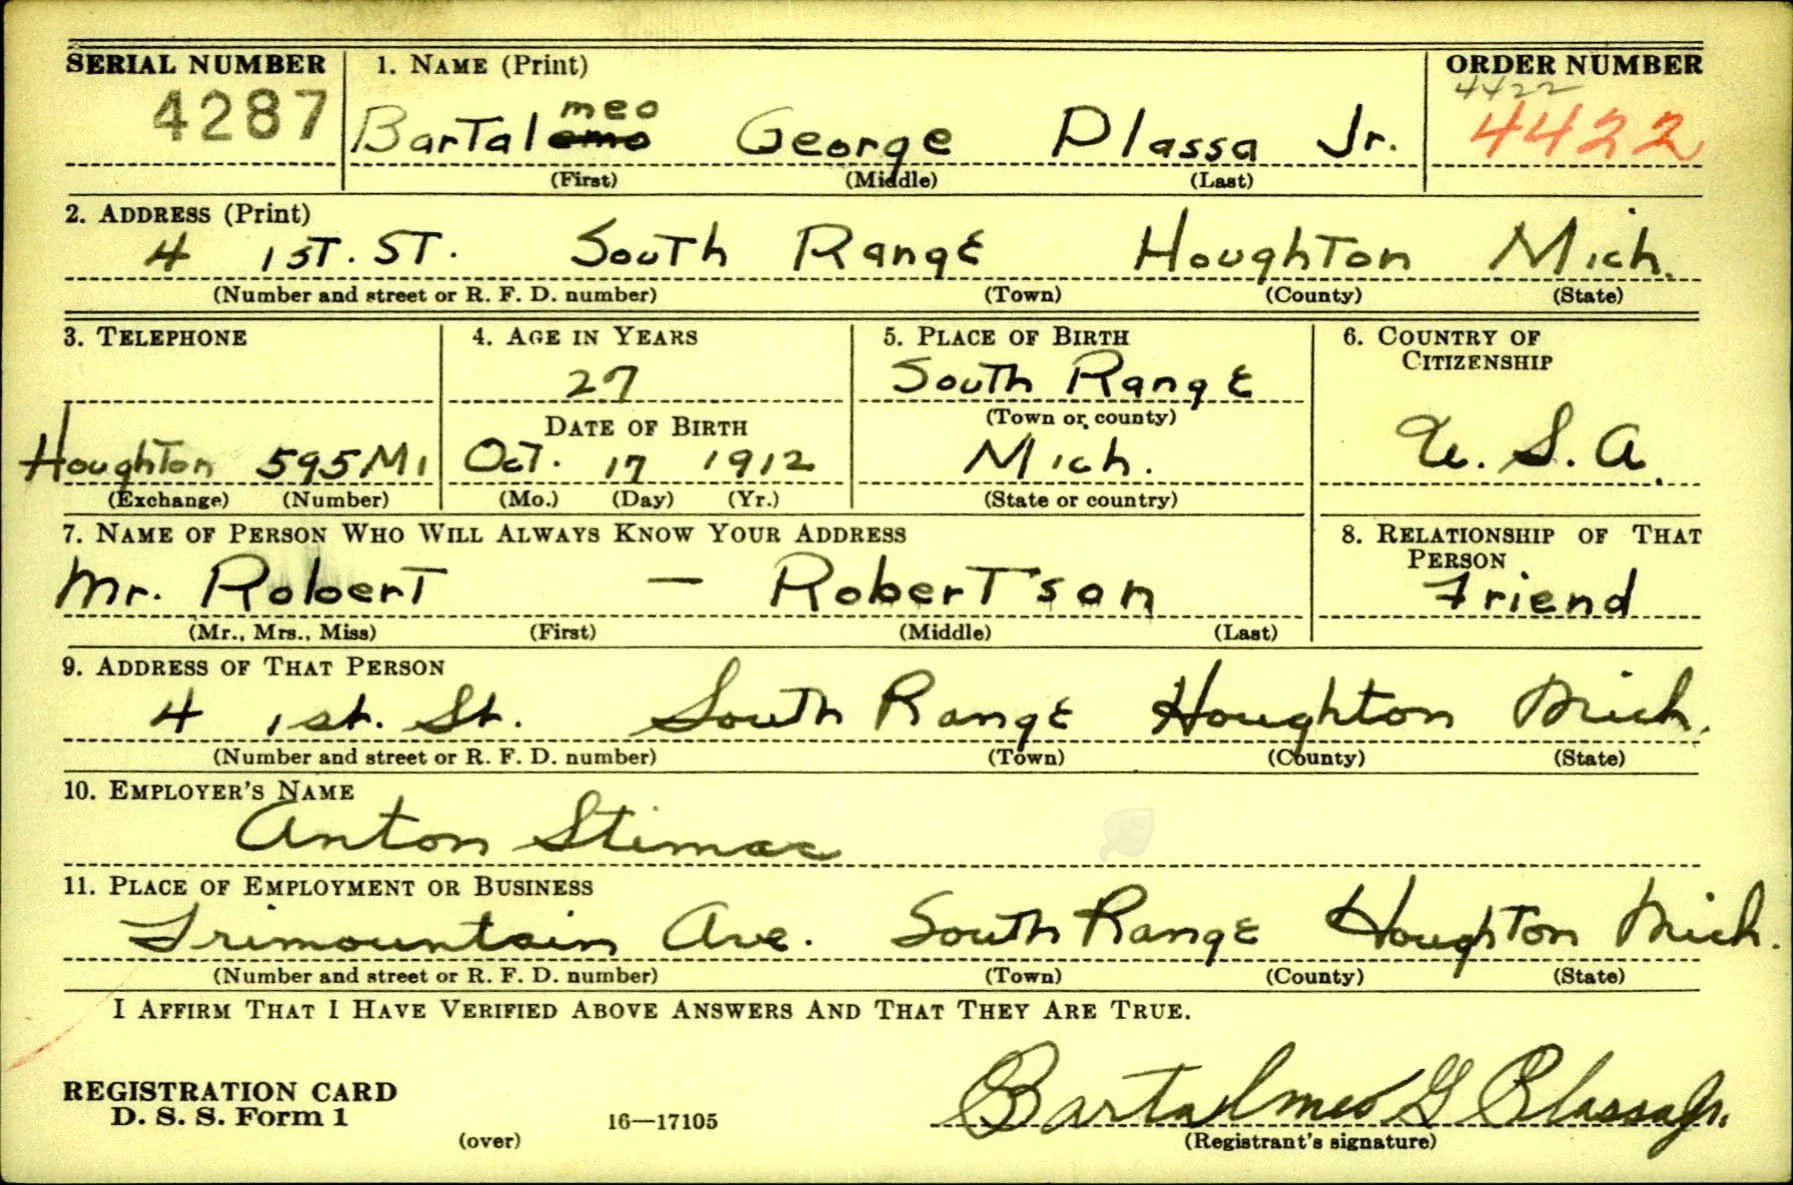 SERIAL NUMBER 1. NAME (Print) ORDER NUMBER
4422
4287 Bartalemo meo George Plassa Jr. 4422
(First) (Middle) (Last)
2. ADDRESS (Print)
4 1ST. ST. South Range Houghton Mich.
(Number and street or R. F. D. number) (Town) (County) (State)
3. TELEPHONE 4. AGE IN YEARS 5. PLACE OF BIRTH 6. COUNTRY OF CITIZENSHIP
27 South Range
DATE OF BIRTH (Town or county)
Houghton 595M1 Oct. 17 1912 Mich. U. S. A.
(Exchange) (Number) (Mo.) (Day) (Yr.) (State or country)
7. NAME OF PERSON WHO WILL ALWAYS KNOW YOUR ADDRESS 8. RELATIONSHIP OF THAT PERSON
Mr. Robert — Robert'son Friend
(Mr., Mrs., Miss) (First) (Middle) (Last)
9. ADDRESS OF THAT PERSON
4 1st. St. South Range Houghton Mich.
(Number and street or R. F. D. number) (Town) (County) (State)
10. EMPLOYER'S NAME
Anton Stimac
11. PLACE OF EMPLOYMENT OR BUSINESS
Trimountain Ave. South Range Houghton Mich.
(Number and street or R. F. D. number) (Town) (County) (State)
I AFFIRM THAT I HAVE VERIFIED ABOVE ANSWERS AND THAT THEY ARE TRUE.
REGISTRATION CARD
D. S. S. Form 1 16—17105 Bartalmeo G Plassa Jr.
(over) (Registrant's signature)